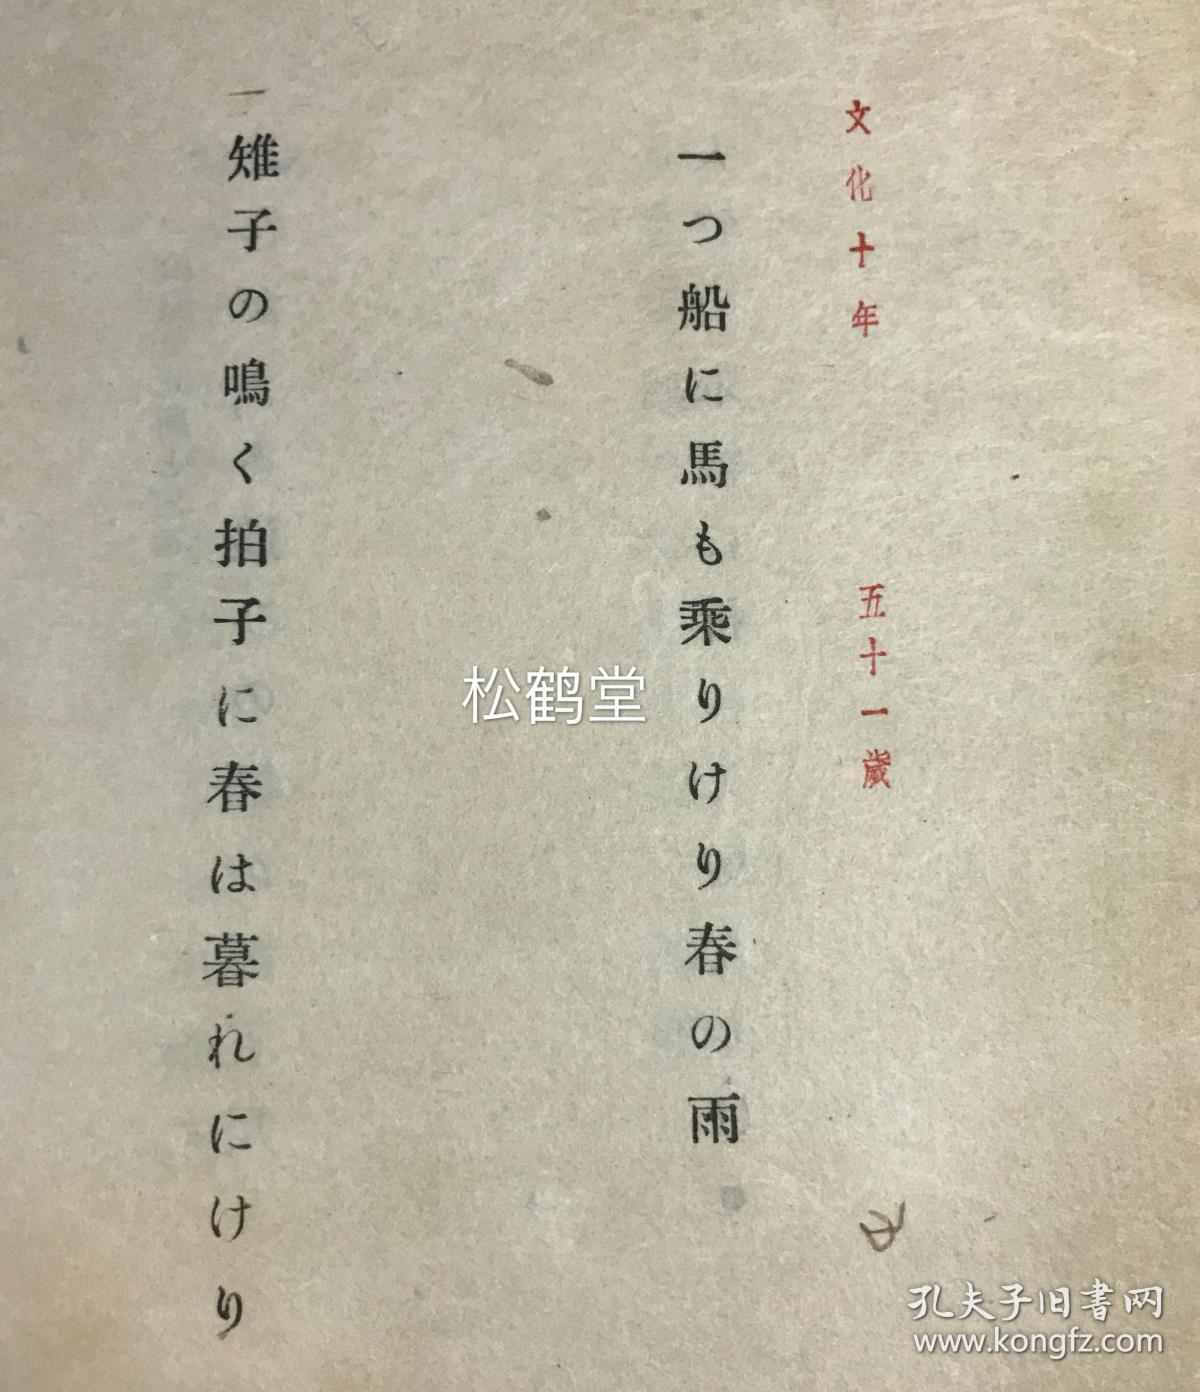 文化十年 五十一歳
一つ船に馬も乗りけり春の雨
雉子の鳴く拍子に春は暮れにけり
松鹤堂
孔夫子旧書网
www.kongfz.com